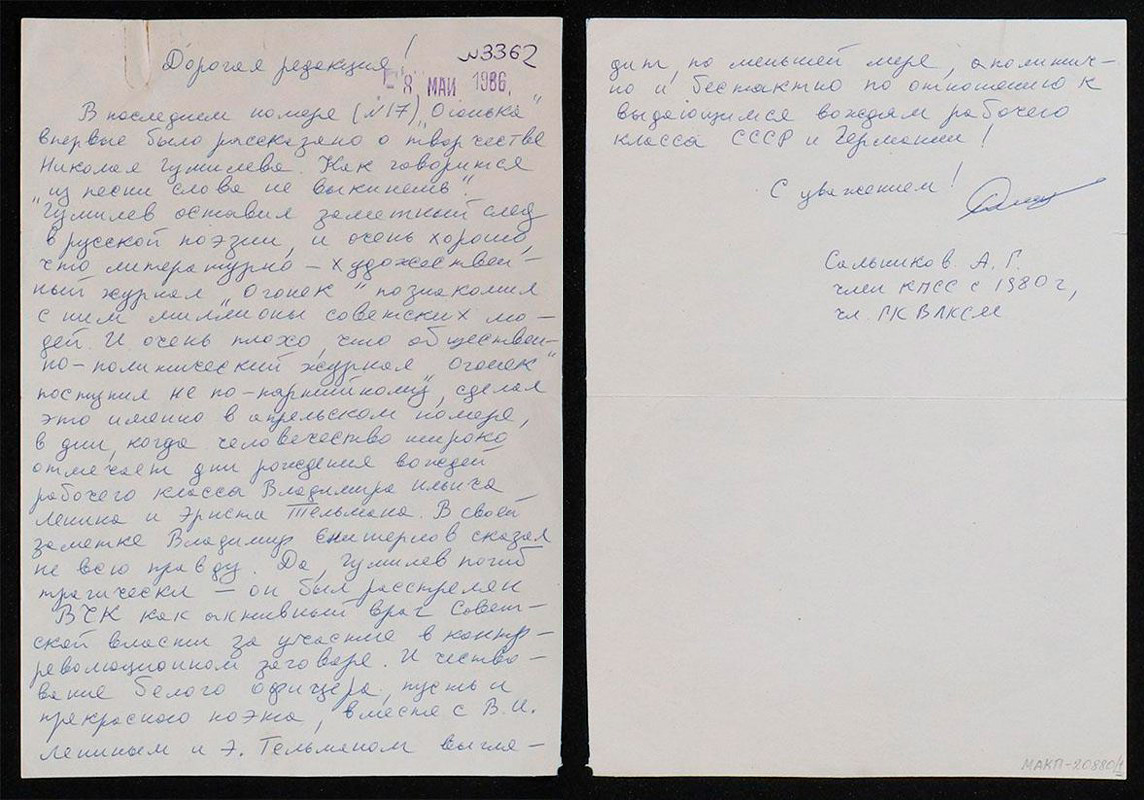 Дорогая редакция!
№3362
8 МАЙ 1986.
В последнем номере (№17) „Огонька"
впервые было рассказано о творчестве
Николая Гумилева. Как говорится
„из песни слова не выкинешь".
Гумилев оставил заметный след
в русской поэзии, и очень хорошо,
что литературно-художествен-
ный журнал „Огонек" познакомил
с ним миллионы советских лю-
дей. И очень плохо, что обществен-
но-политический журнал „Огонек"
поступил не по-партийному, сделав
это именно в апрельском номере,
в дни, когда человечество широко
отмечает дни рождения вождей
рабочего класса Владимира Ильича
Ленина и Эрнста Тельмана. В своей
заметке Владимир Енишерлов сказал
не всю правду. Да, Гумилев погиб
трагически – он был расстрелян
ВЧК как активный враг Совет-
ской власти за участие в контр-
революционном заговоре. И чество-
вание белого офицера, пусть и
прекрасного поэта, вместе с В.И.
Лениным и Э. Тельманом выгля-
дит, по меньшей мере, аполитич-
но и бестактно по отношению к
выдающимся вождям рабочего
класса СССР и Германии!
С уважением!
Сальников А.Г.
член КПСС с 1980 г,
чл. ГК ВЛКСМ
МАКП-20880/1